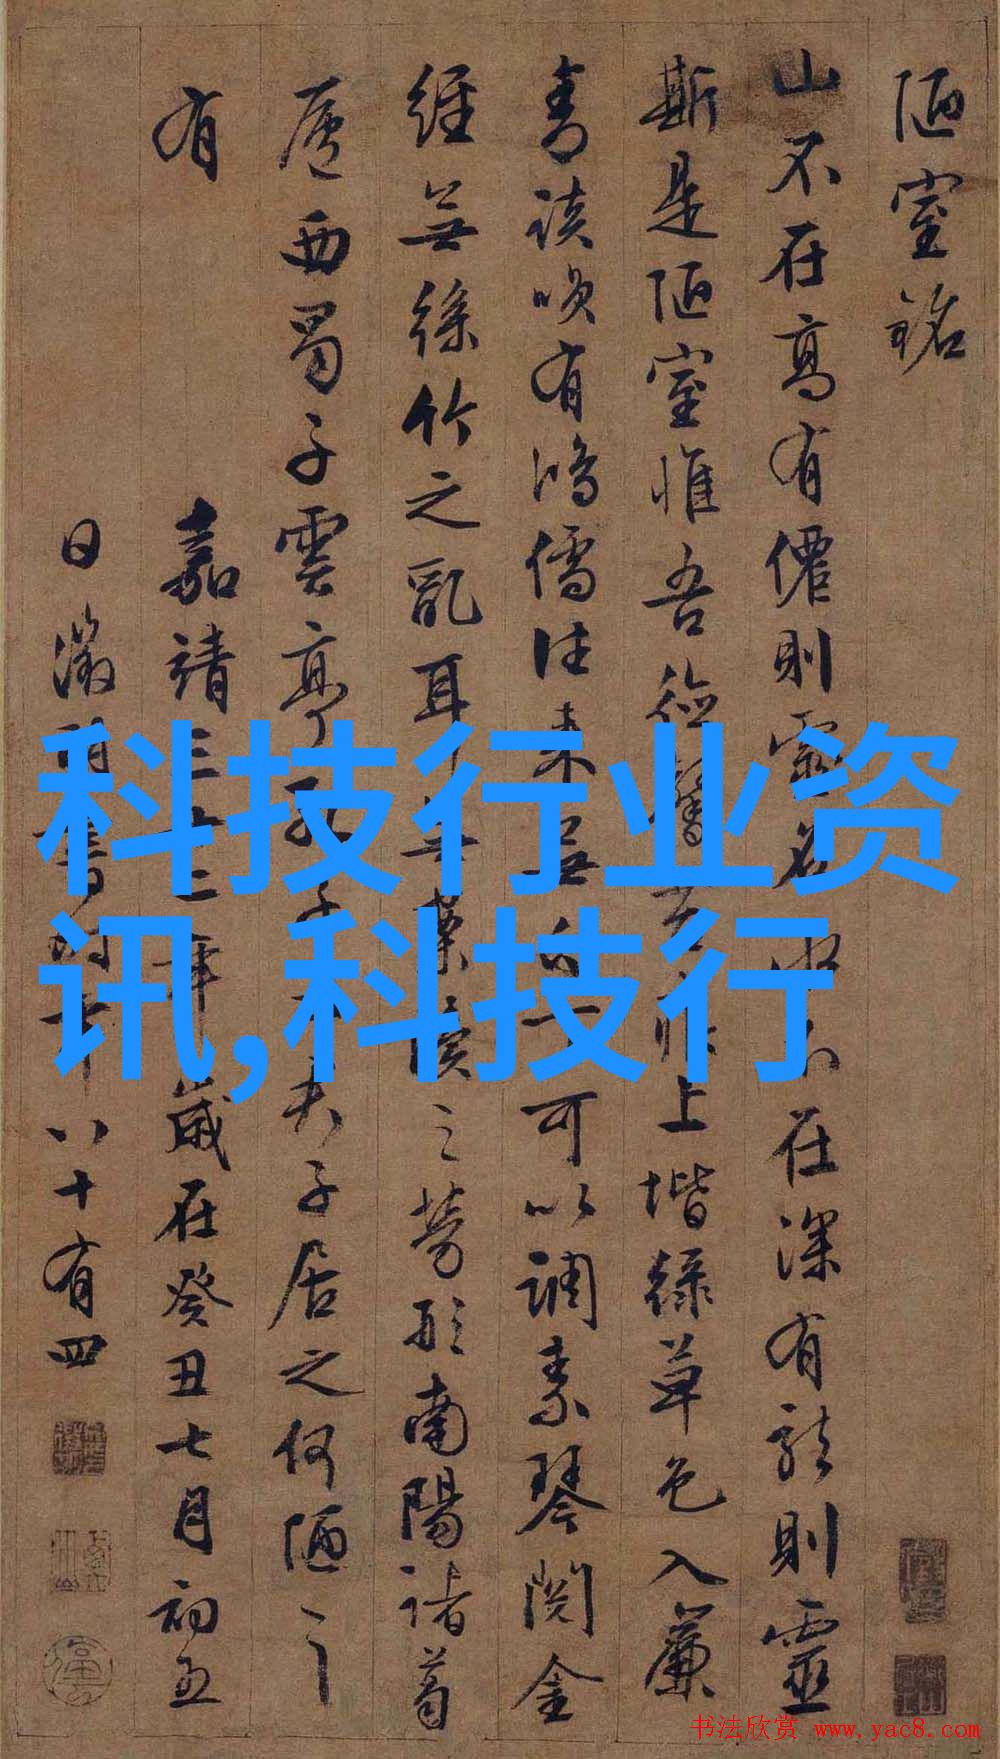 陋室銘
山不在高有僊則靈名水不在深有龍則靈
斯是陋室惟吾德馨苔痕上堦綠草色入簾
青談咲有鴻儒往来無白丁可以調素琴閱金
經無絲竹之亂耳無案牘之勞形南陽諸葛
廬西蜀子雲亭孔子云夫子居之何陋之
有
嘉靖三十二年歲在癸丑七月初五
日徵明書時年八十有四
科技行业资
讯,科技行
书法欣赏 www.yac8.com